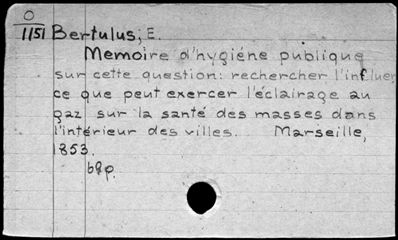 O
1151 Bertulus, E.
Memoire d'hygiéne publique
sur cette question: rechercher l'influen
ce que peut exercer l'éclairage au
gaz sur la santé des masses dans
l'intérieur des villes. Marseille,
1853.
68p.